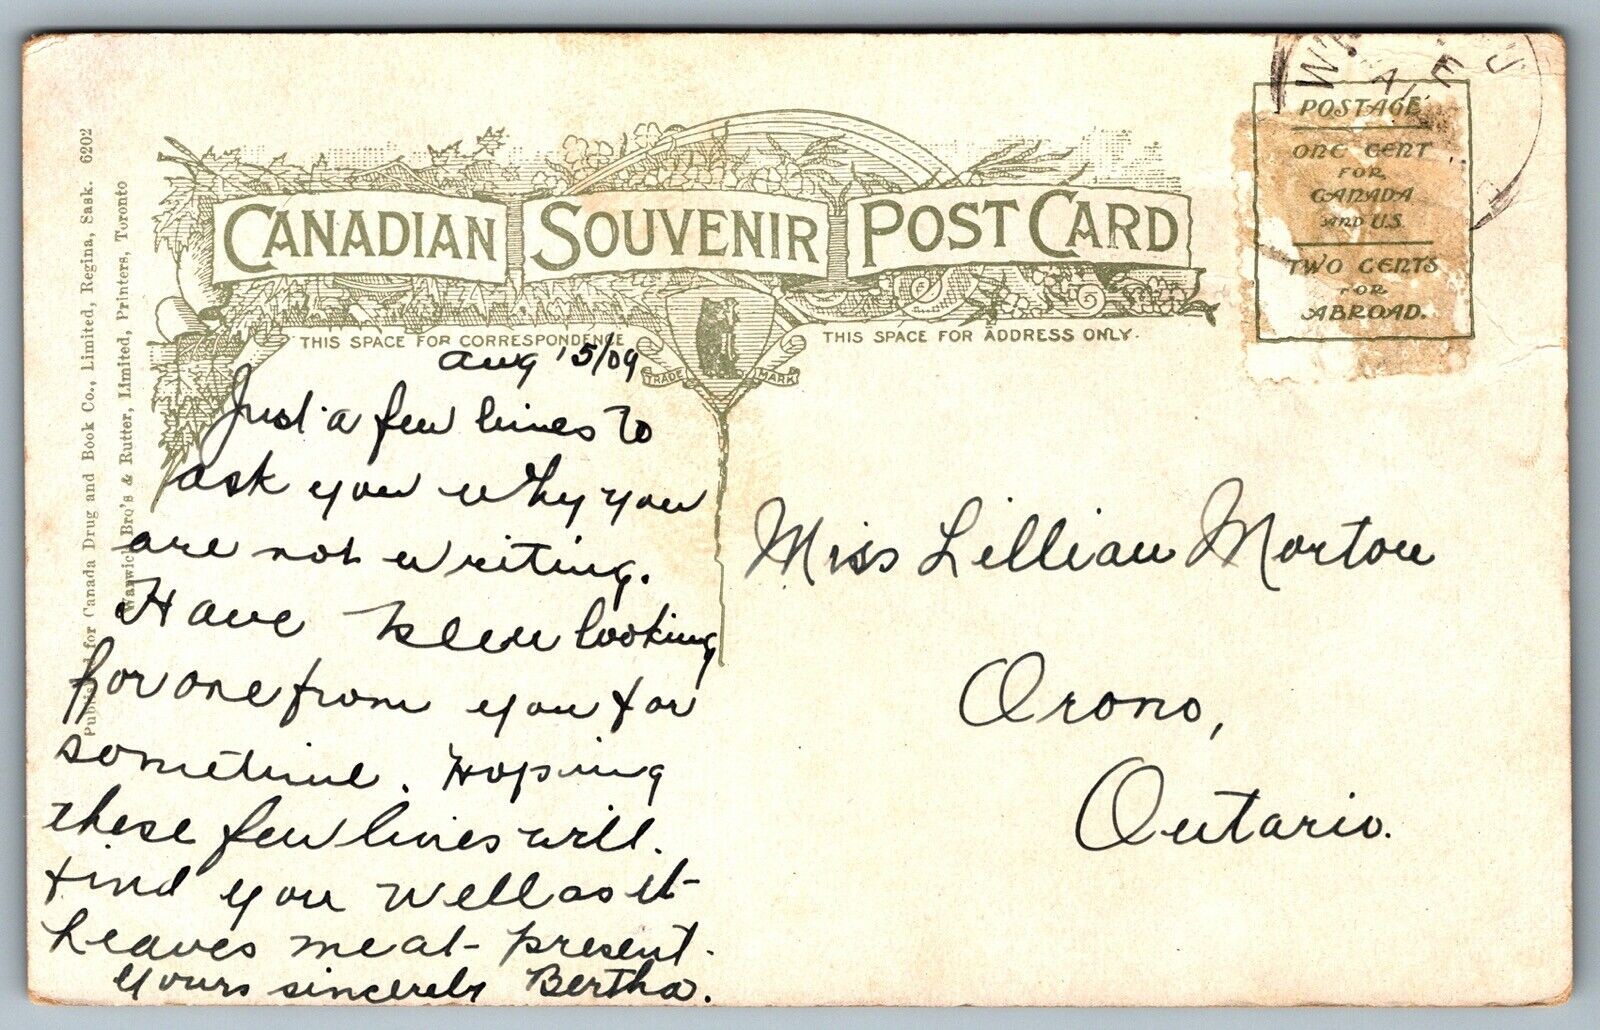 CANADIAN SOUVENIR POST CARD
THIS SPACE FOR CORRESPONDENCE
THIS SPACE FOR ADDRESS ONLY.
TRADE MARK
POSTAGE
ONE CENT
FOR
CANADA
AND U.S.
TWO CENTS
FOR
ABROAD.
Published for Canada Drug and Book Co., Limited, Regina, Sask. 6202
Warwick Bro's & Rutter, Limited, Printers, Toronto
Aug '5/09
Just a few lines to
ask you why you
are not writing.
Have been looking
for one from you for
sometime. Hoping
these few lines will.
find you well as it
leaves me at present.
yours sincerely Bertha.
Miss Lillian Morton
Orono,
Ontario.